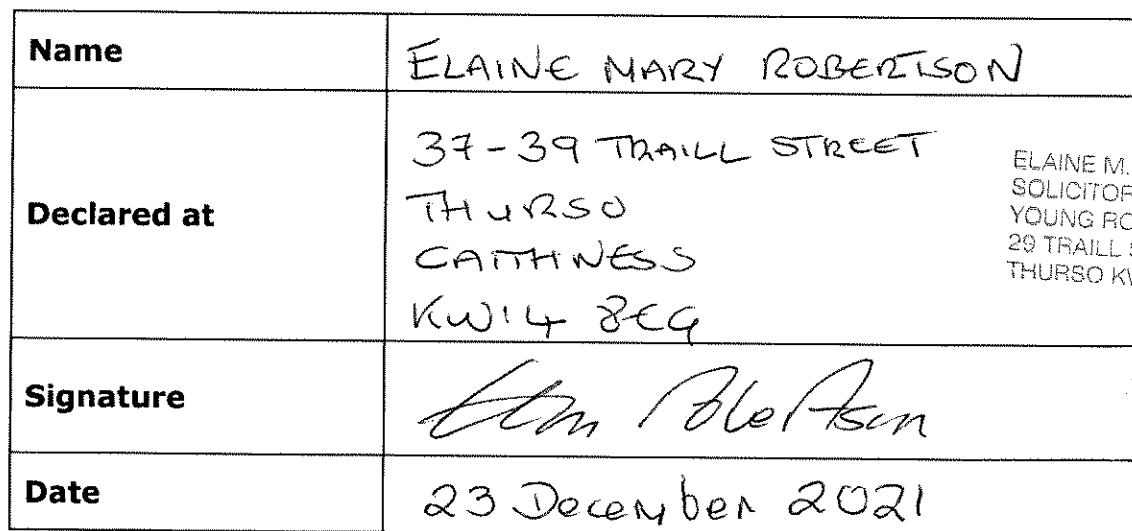 Name
ELAINE MARY ROBERTSON
Declared at
37-39 TRAILL STREET
THURSO
CAITHNESS
KW14 8EG
ELAINE M.
SOLICITOR
YOUNG RO
29 TRAILL S
THURSO KW
Signature
Robertson
Date
23 December 2021